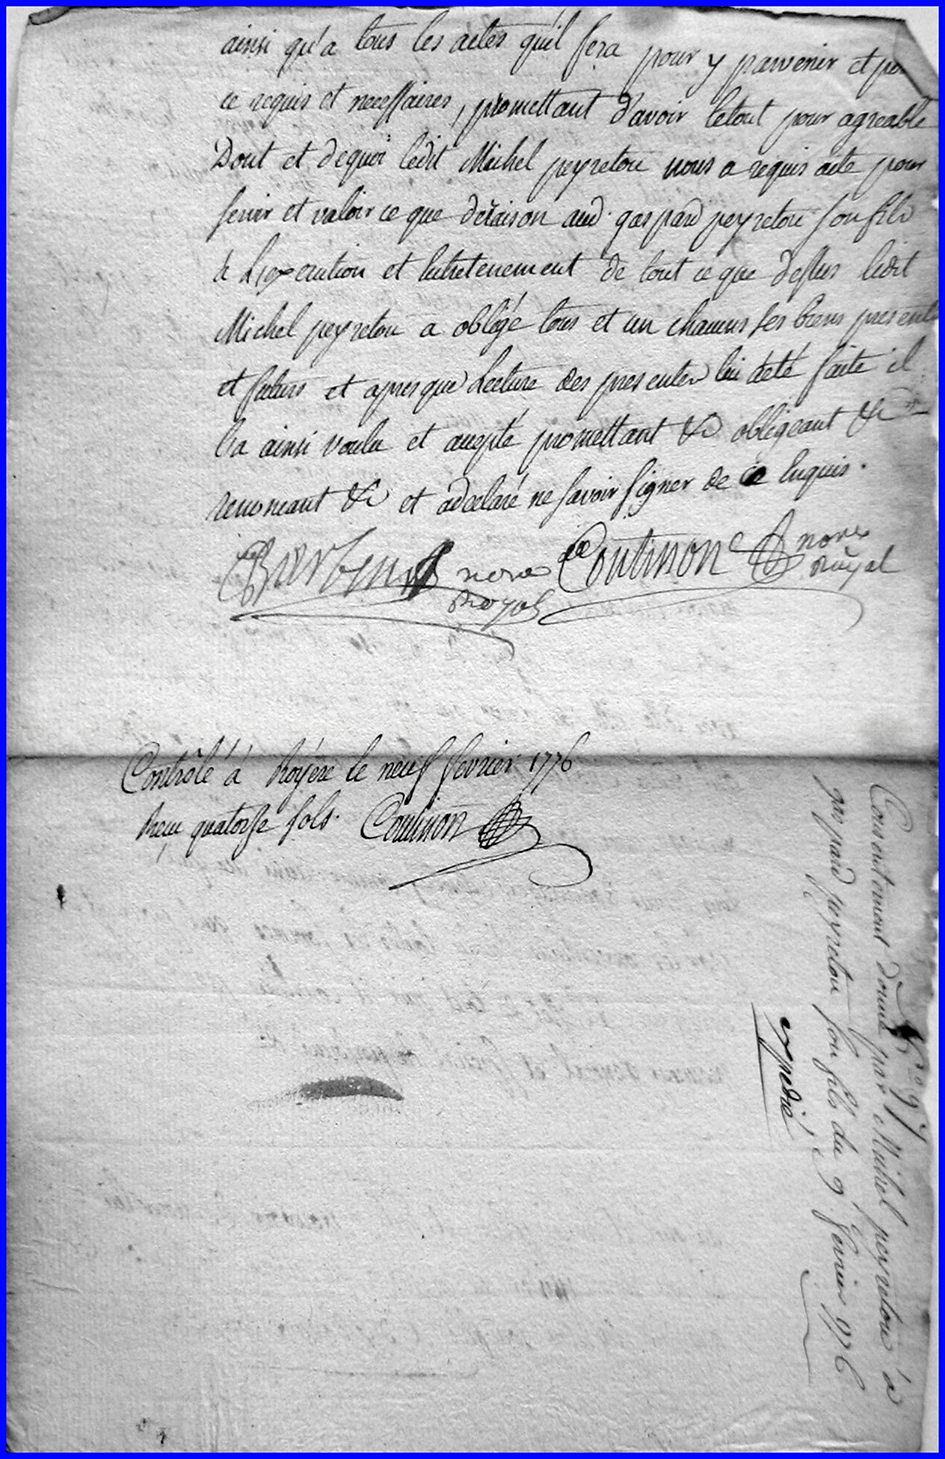 ainsi qu'a tous les actes qu'il fera pour y parvenir et pour
ce requis et necessaires, promettant d'avoir letout pour agreable
Dont et dequoi ledit Michel peyretou nous a requis acte pour
servir et valoir ce que deraison aud. gaspard peyretou son fils
& Lexecution et Entretenement de tout ce que dessus ledit
Michel peyretou a obligé tous et un chacuns ses biens presents
et futurs et apres que Lecture des presentes lui aeté faite il
l'a ainsi voulu et accepté promettant &c obligeant &c
renonceant &c et adeclaré ne savoir signer de ce Enquis.
nore Royal
Coutisson nore Royal
Contrôlé á Royère le neuf fevrier 1776
Reçu quatorse sols. Coutisson
No 97
Consentement donné par Michel peyretou à
gaspard peyretou son fils du 9 fevrier 1776
Expedié